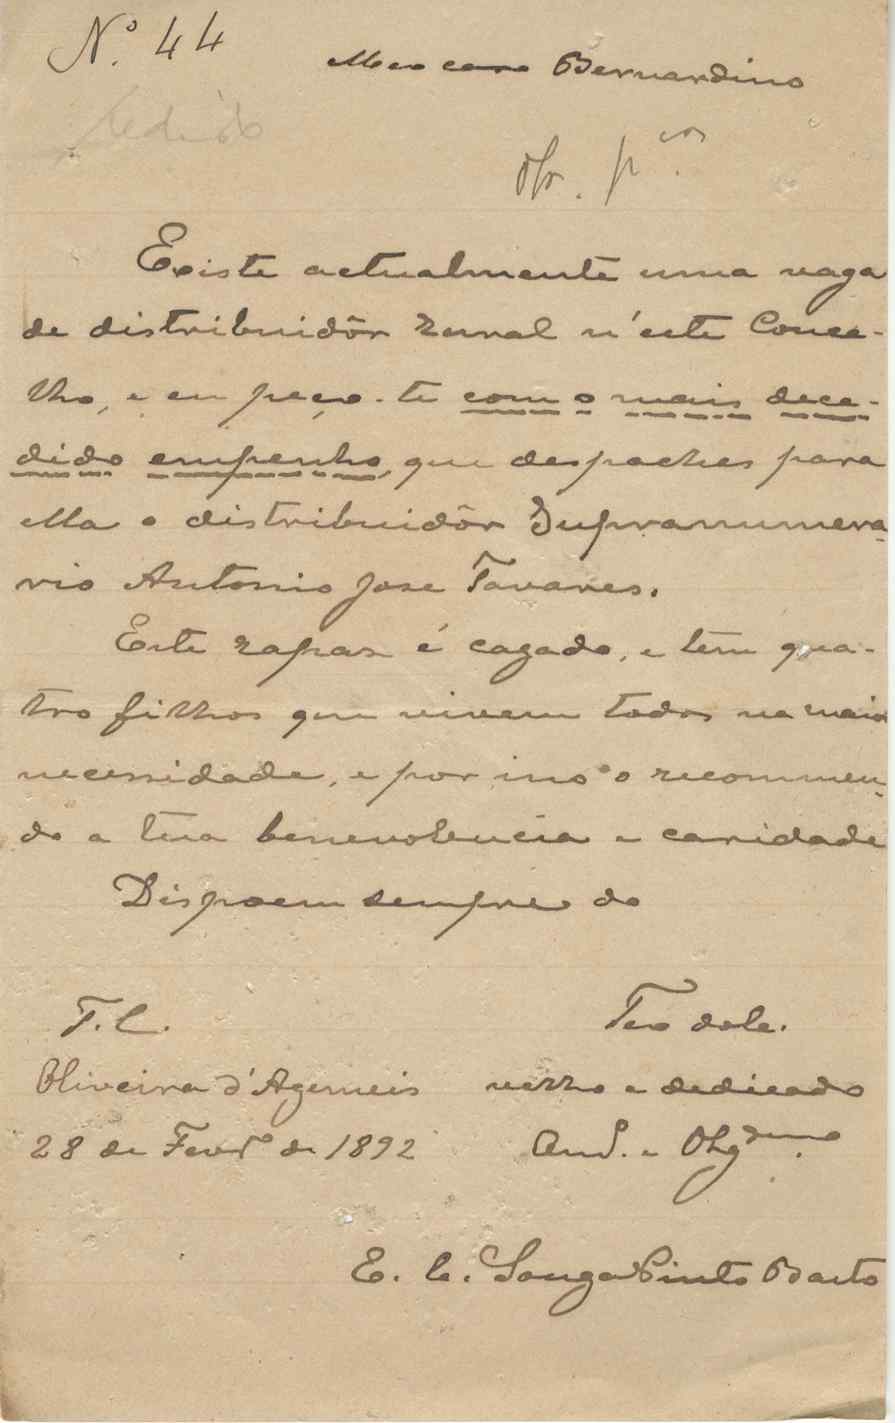 Nº. 44
Meu caro Bernardino
Pedido
Existe actualmente uma vaga
de distribuidôr rural n'este Conce-
lho, e eu peço-te com o mais dece-
dido empenho, que despaches para
ella o distribuidôr Supranumera-
rio Antonio Jose Tavares.
Este rapaz é cazado, e tem qua-
tro filhos que vivem todos na maior
necessidade, e por isso o recommen-
do a tua benevolencia e caridade
Dispoem sempre do
T. C.
Teu do C.
Oliveira d'Azemeis
velho e dedicado
28 de Fever.º de 1892
Am.º e Obg.demo
E. C. Souza Pinto Basto